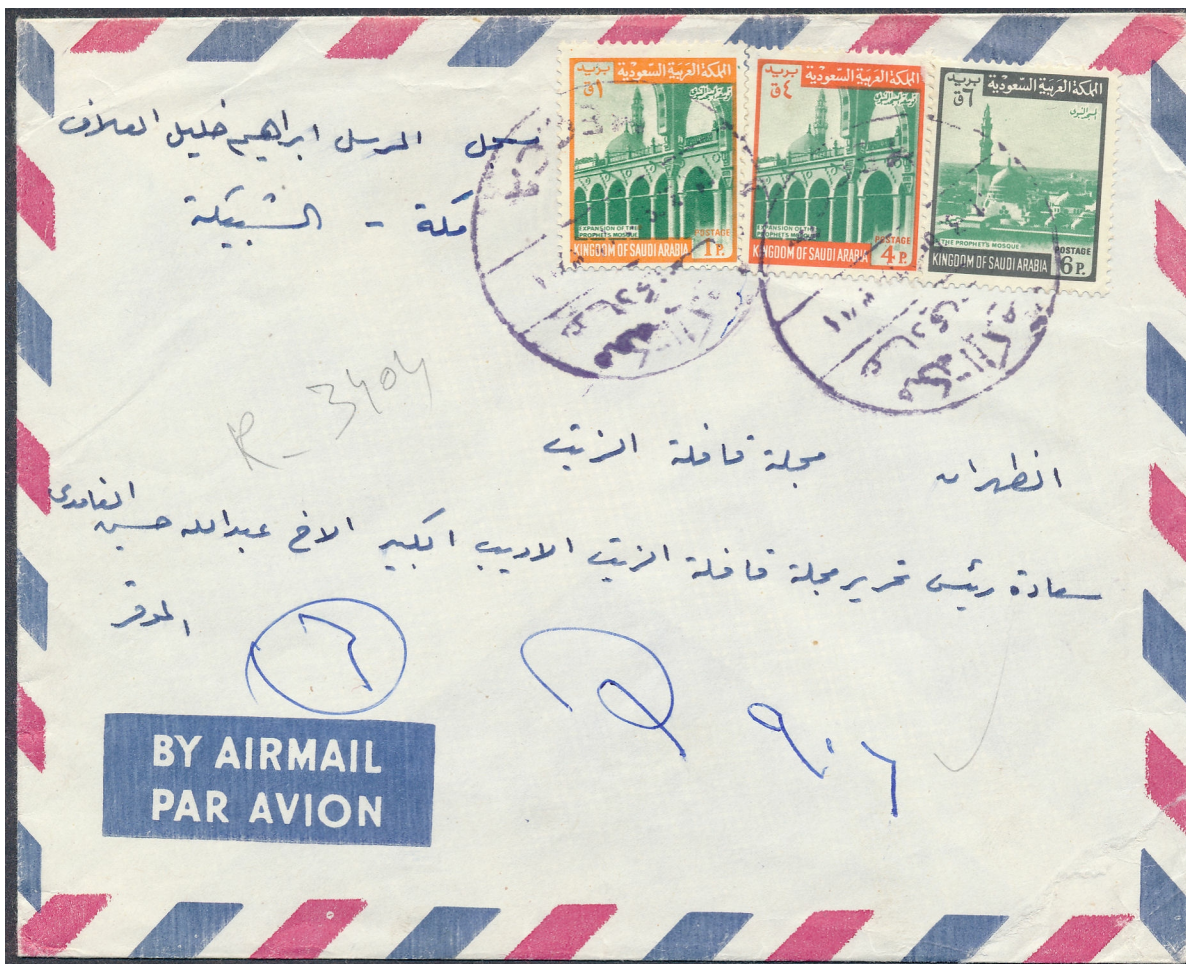 مسجل المرسل ابراهيم خليل العلاف
مكة - الشبيكة
المملكة العربية السعودية
بريد
١ق
EXPANSION OF THE PROPHET'S MOSQUE
POSTAGE
KINGDOM OF SAUDI ARABIA 1P.
المملكة العربية السعودية
بريد
٤ق
EXPANSION OF THE PROPHET'S MOSQUE
POSTAGE
KINGDOM OF SAUDI ARABIA 4P.
المملكة العربية السعودية
بريد
٦ق
THE PROPHET'S MOSQUE
POSTAGE
KINGDOM OF SAUDI ARABIA 6P.
R - 3404
الظهران مجلة قافلة الزيت
سعادة رئيس تحرير مجلة قافلة الزيت الاديب الكبير الاخ عبدالله حسين الغامدى
الموقر
٩٠٦
BY AIRMAIL
PAR AVION